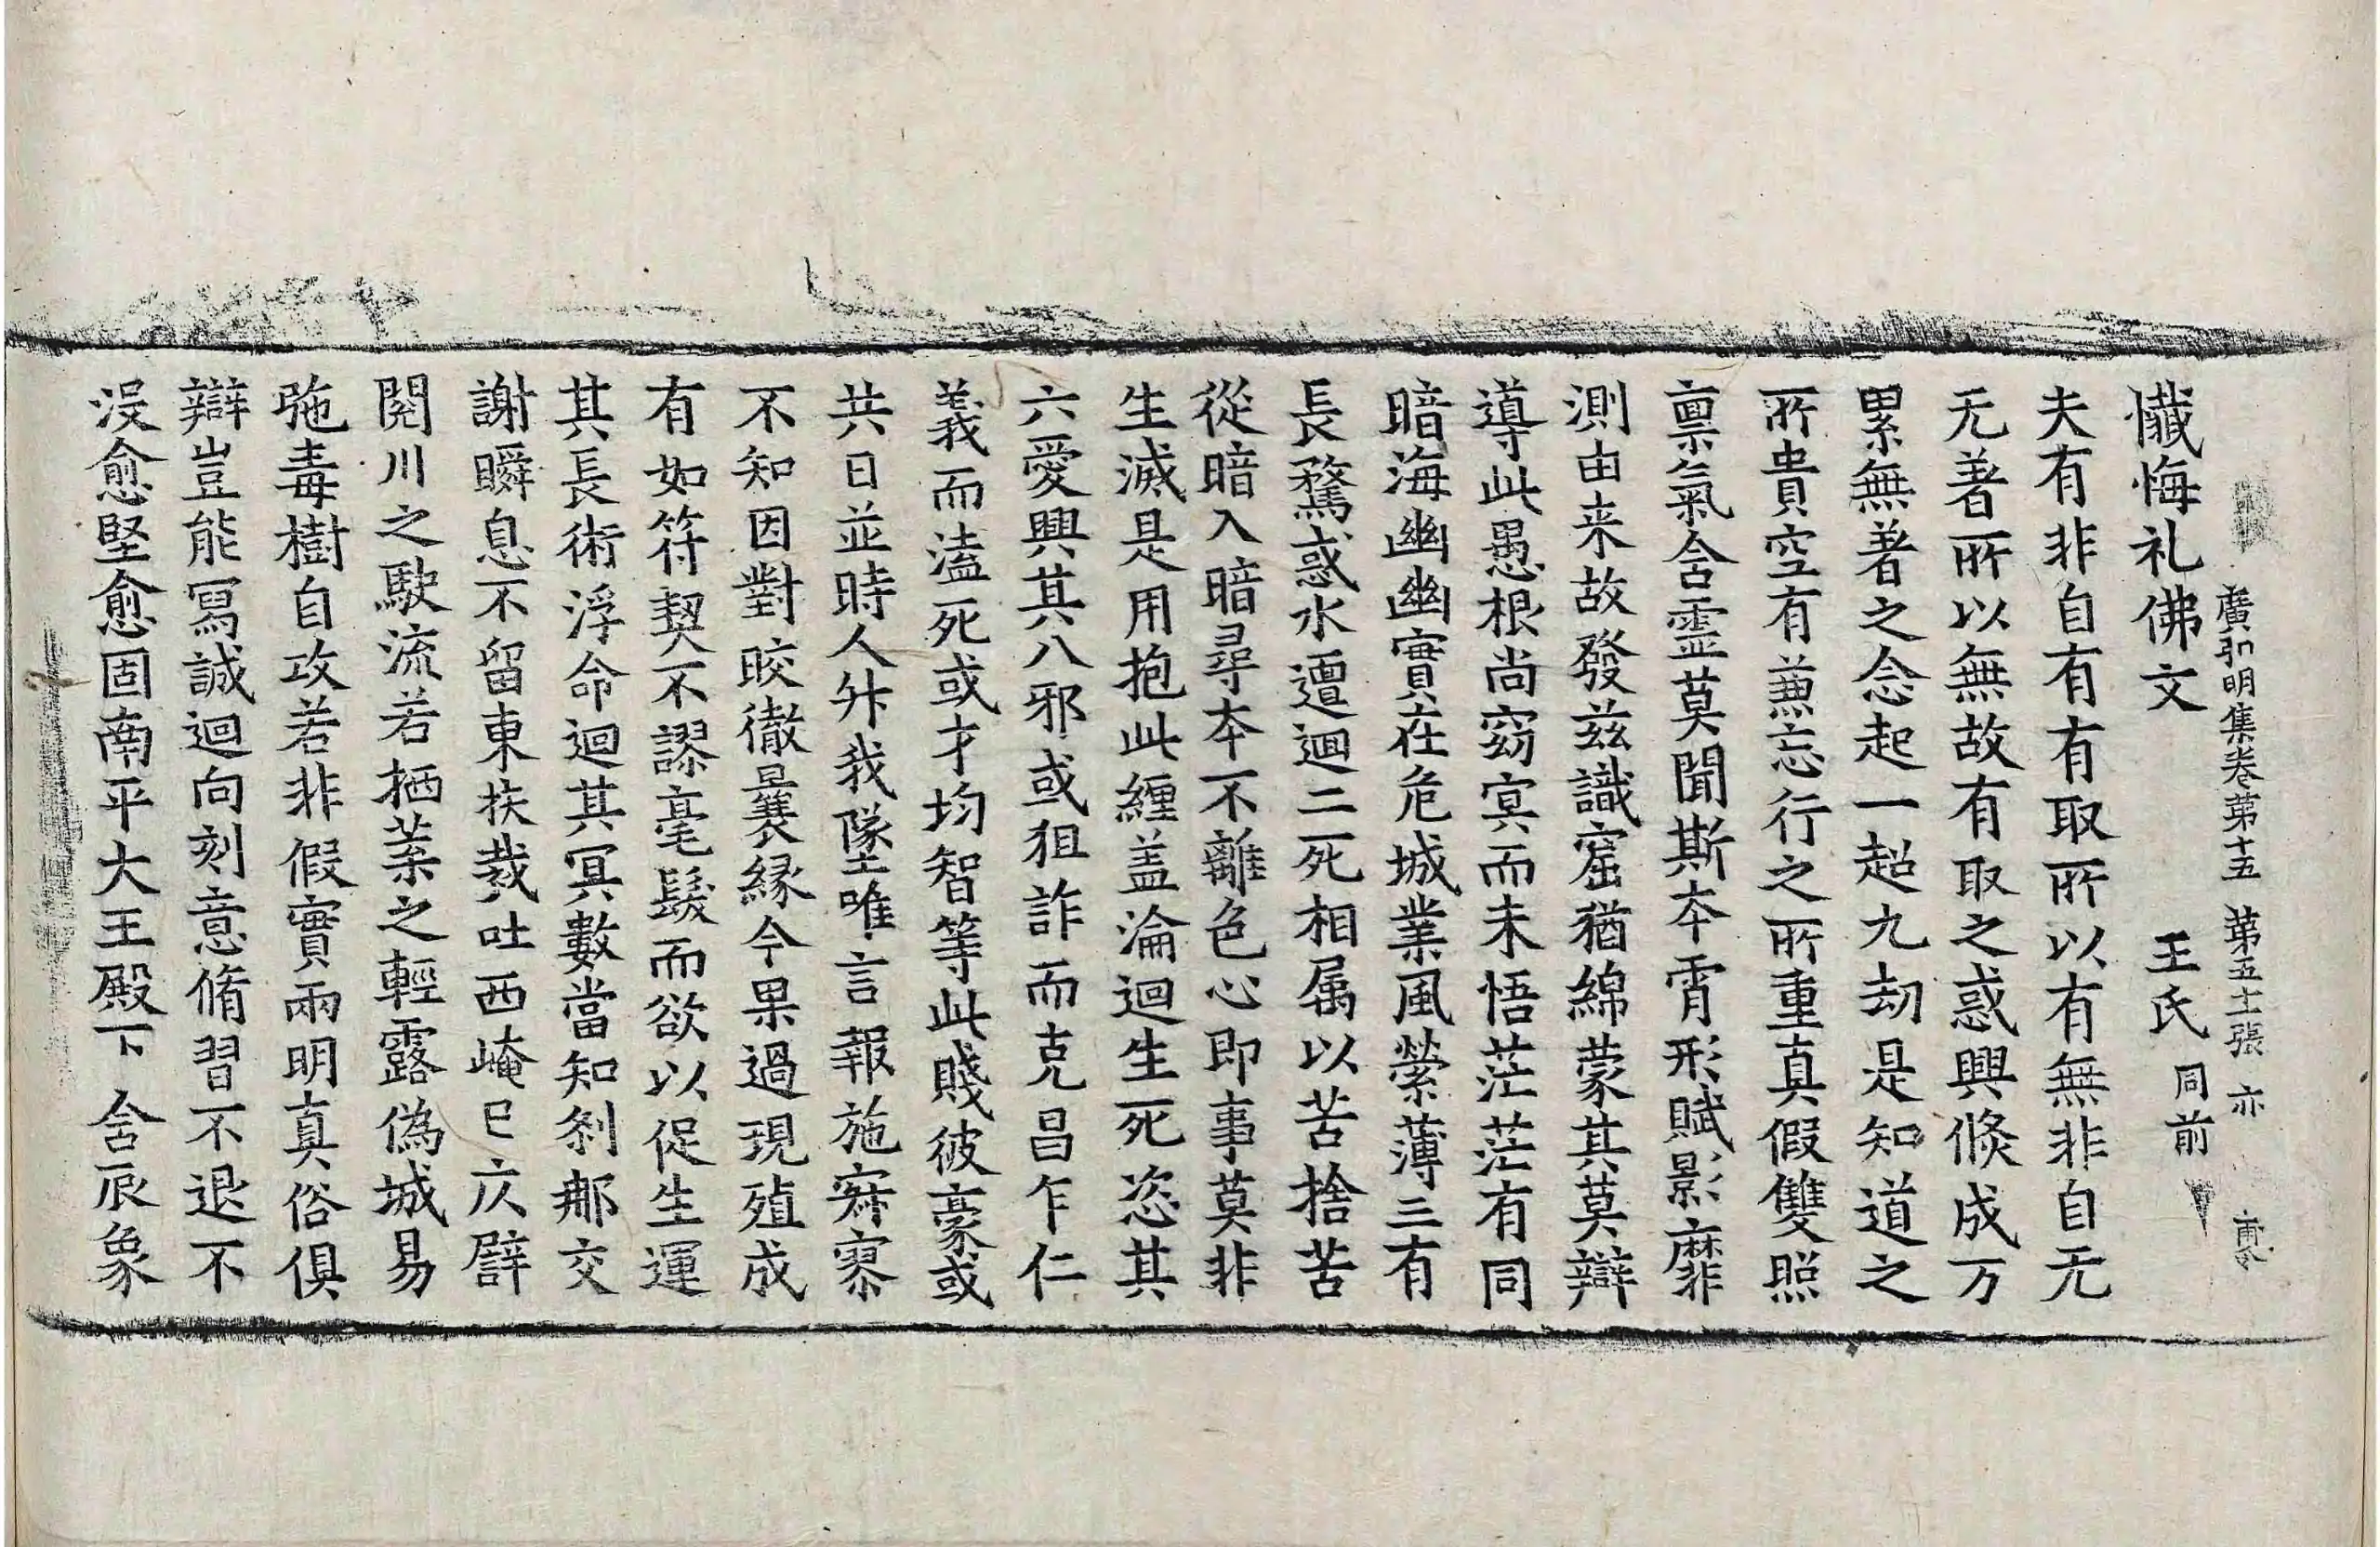 廣弘明集卷第十五 第五十張 亦
懺悔礼佛文 王氏 同前
夫有非自有有取所以有無非自无
无著所以無故有取之惑興倐成万
累無著之念起一超九劫是知道之
所貴空有蕙忘行之所重真假雙照
禀氣含霊莫聞斯夲霄形賦影靡
測由来故發兹識窟猶綿蒙其莫辯
導此愚根尚窈㝠而未悟茫茫有同
暗海幽幽實在危城業風縈薄三有
長騖惑水邅迴二死相属以苦捨苦
從暗入暗尋夲不離色心即事莫非
生滅是用抱此纏盖淪迴生死恣其
六愛興其八邪或狙詐而克昌乍仁
義而溘死或才均智等此賤彼豪或
共日並時人升我墜唯言報施寂寥
不知因對皎徹曩縁今果過現殖成
有如符契不謬毫髮而欲以促生運
其長術浮命迴其冥數當知刹那交
謝瞬息不留東扶裁吐西崦已仄譬
閱川之駛流若栖葉之輕露偽城易
弛毒樹自攻若非假實兩明真俗俱
辯豈能寫誠迴向刻意脩習不退不
没愈堅愈固南平大王殿下 含辰象